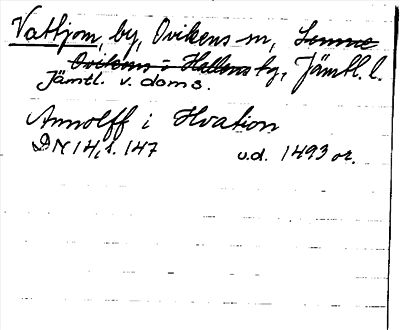 Vattjom, by, Ovikens sn, Sunne
Ovikens i Hallens tg, Jämtl. l.
Jämtl. v. doms.
Annolff i Hvation
DN 14, s. 147 u.d. 1493 or.